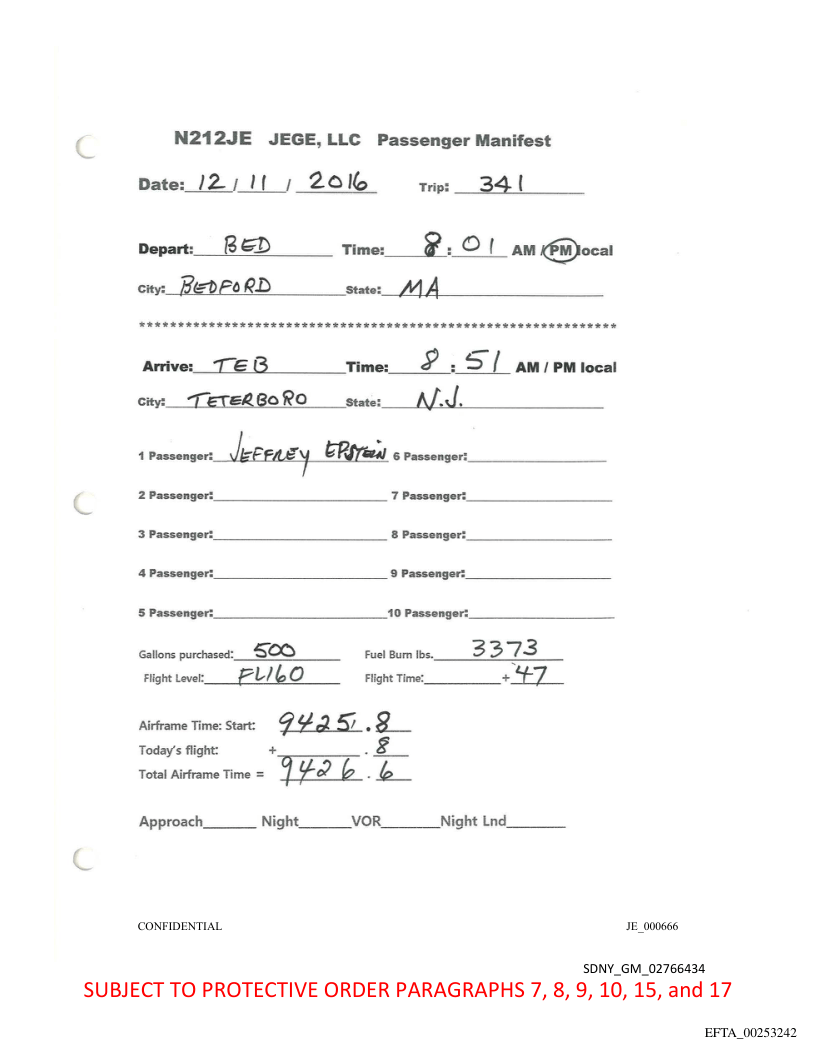 N212JE JEGE, LLC Passenger Manifest
Date: 12 / 11 / 2016 Trip: 341
Depart: BED Time: 8 : 01 AM / PM local
City: BEDFORD State: MA
****************************************************************
Arrive: TEB Time: 8 : 51 AM / PM local
City: TETERBORO State: N.J.
1 Passenger: JEFFREY EPSTEIN 6 Passenger:
2 Passenger: 7 Passenger:
3 Passenger: 8 Passenger:
4 Passenger: 9 Passenger:
5 Passenger: 10 Passenger:
Gallons purchased: 500 Fuel Burn lbs. 3373
Flight Level: FL160 Flight Time: + 47
Airframe Time: Start: 9425 . 8
Today's flight: + . 8
Total Airframe Time = 9426 . 6
Approach Night VOR Night Lnd
CONFIDENTIAL JE_000666
SDNY_GM_02766434
SUBJECT TO PROTECTIVE ORDER PARAGRAPHS 7, 8, 9, 10, 15, and 17
EFTA_00253242